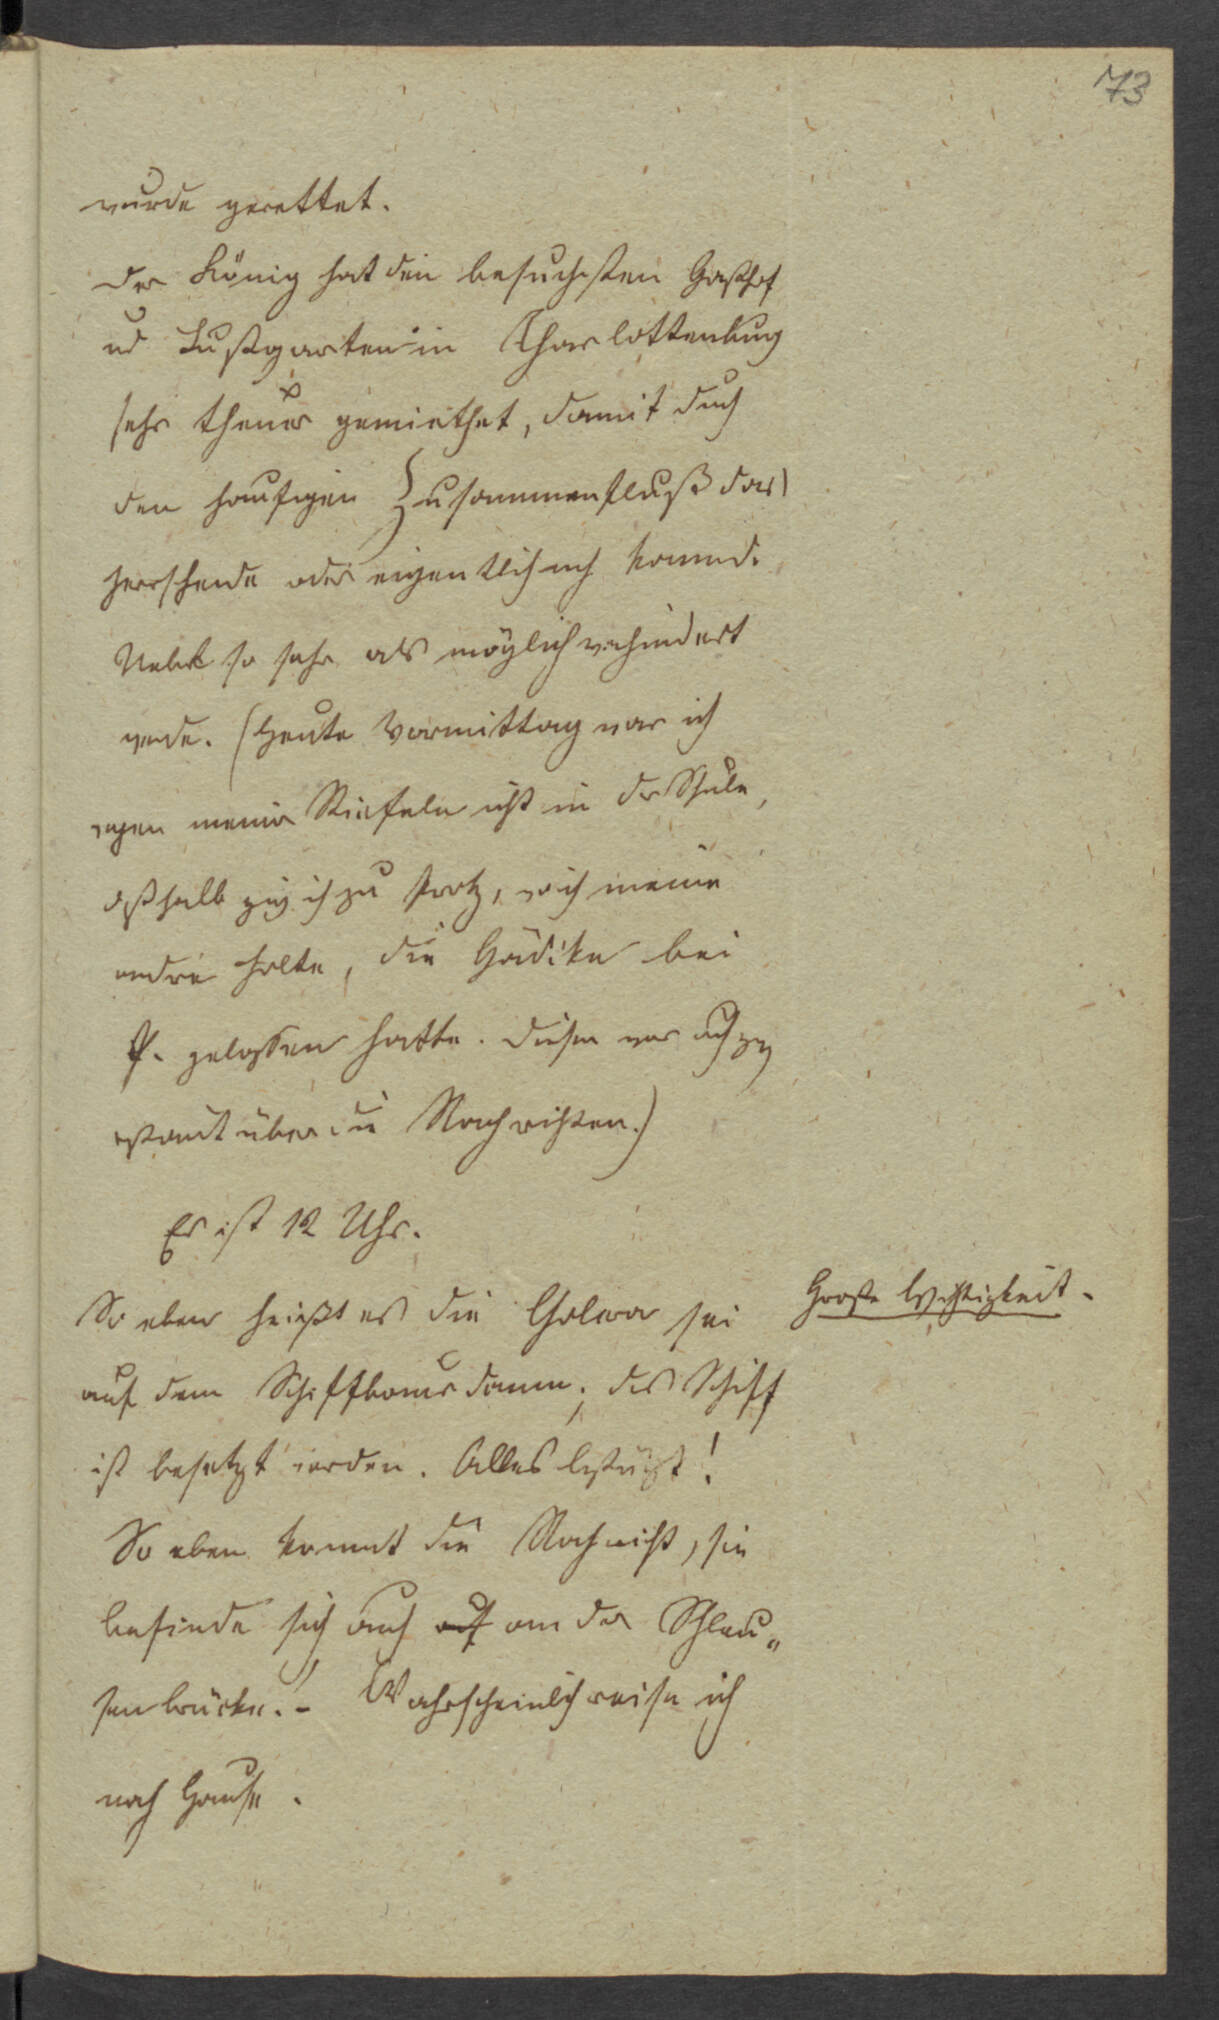 73
wurde gerettet.
Der König hat den besuchtesten Gasthof
und Lustgarten in Charlottenburg
sehr theuer gemiethet, damit durch
den häufigen Zusammenfluß das
herrschende oder eigentlich noch kommende
Uebel so sehr als möglich verhindert
werde. (Heute Vormittag war ich
wegen meiner Stiefeln nicht in der Schule,
deßhalb ging ich zu wo ich meine
andre holte, die Gädike bei
gelassen hatte. Dieser war auch ganz
erstaunt über die Nachrichten.)
Es ist 12 Uhr.
So eben heißt es die Cholera sei
auf dem Schiffbauerdamm; das Schiff
ist besetzt worden. Alles bestürzt!
So eben kommt die Nachricht, sie
befinde sich auch auf an der Schleu„
senbrücke. – Wahrscheinlich reise ich
nach Hause.
Große Wichtigkeit.